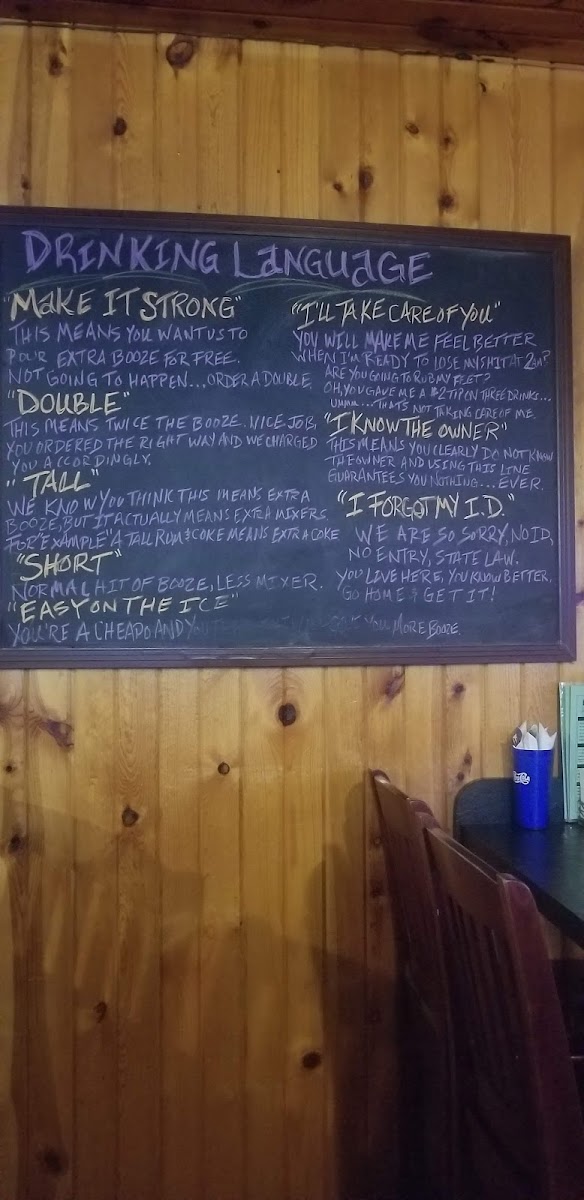 DRINKING LANGUAGE
"MAKE IT STRONG"
THIS MEANS YOU WANT US TO
POUR EXTRA BOOZE FOR FREE.
NOT GOING TO HAPPEN...ORDER A DOUBLE.
"DOUBLE"
THIS MEANS TWICE THE BOOZE. NICE JOB,
YOU ORDERED THE RIGHT WAY AND WE CHARGED
YOU ACCORDINGLY.
"TALL"
WE KNOW YOU THINK THIS MEANS EXTRA
BOOZE, BUT IT ACTUALLY MEANS EXTRA MIXERS
FOR EXAMPLE "A TALL RUM & COKE MEANS EXTRA COKE
"SHORT"
NORMAL HIT OF BOOZE, LESS MIXER.
"EASY ON THE ICE"
YOU'RE A CHEAPO AND YOU MORE BOOZE.
"I'LL TAKE CARE OF YOU"
YOU WILL MAKE ME FEEL BETTER
WHEN I'M READY TO LOSE MY SHIT AT 2AM?
ARE YOU GOING TO RUB MY FEET?
OH, YOU GAVE ME A $2 TIP ON THREE DRINKS...
UMMM.... THATS NOT TAKING CARE OF ME.
"I KNOW THE OWNER"
THIS MEANS YOU CLEARLY DO NOT KNOW
THE OWNER AND USING THIS LINE
GUARANTEES YOU NOTHING... EVER.
"I FORGOT MY I.D."
WE ARE SO SORRY, NO ID,
NO ENTRY, STATE LAW.
YOU LIVE HERE, YOU KNOW BETTER.
GO HOME & GET IT!